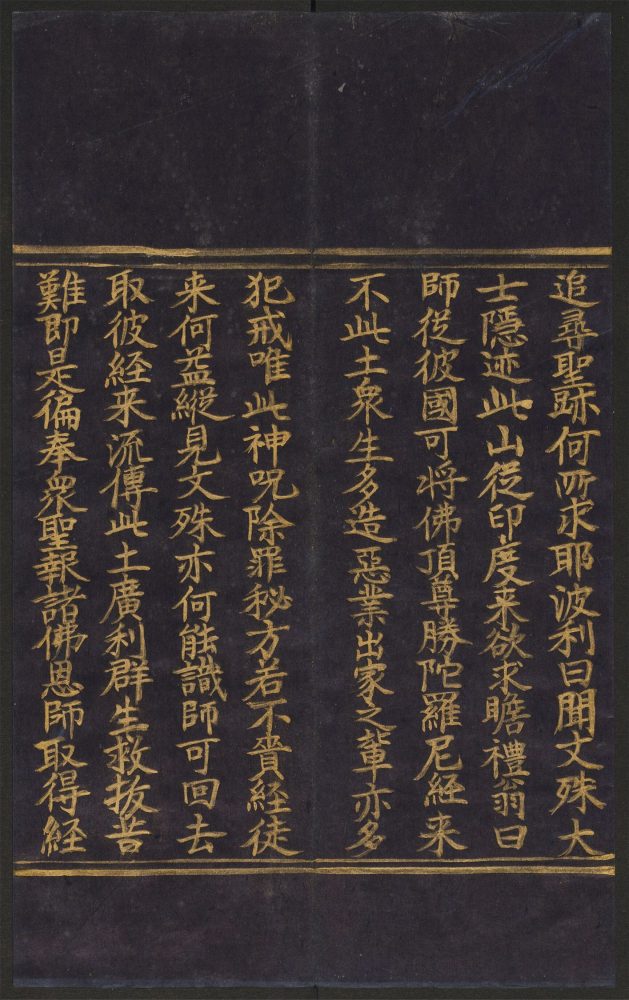 追尋聖跡何所求耶波利曰聞文殊大
士隱迹此山從印度来欲求瞻禮翁曰
師從彼國可将佛頂尊勝陀羅尼経来
不此土衆生多造惡業出家之輩亦多
犯戒唯此神呪除罪秘方若不賷経徒
来何益縱見文殊亦何能識師可回去
取彼経来流傳此土廣利群生救拔苦
難即是徧奉衆聖報諸佛恩師取得経